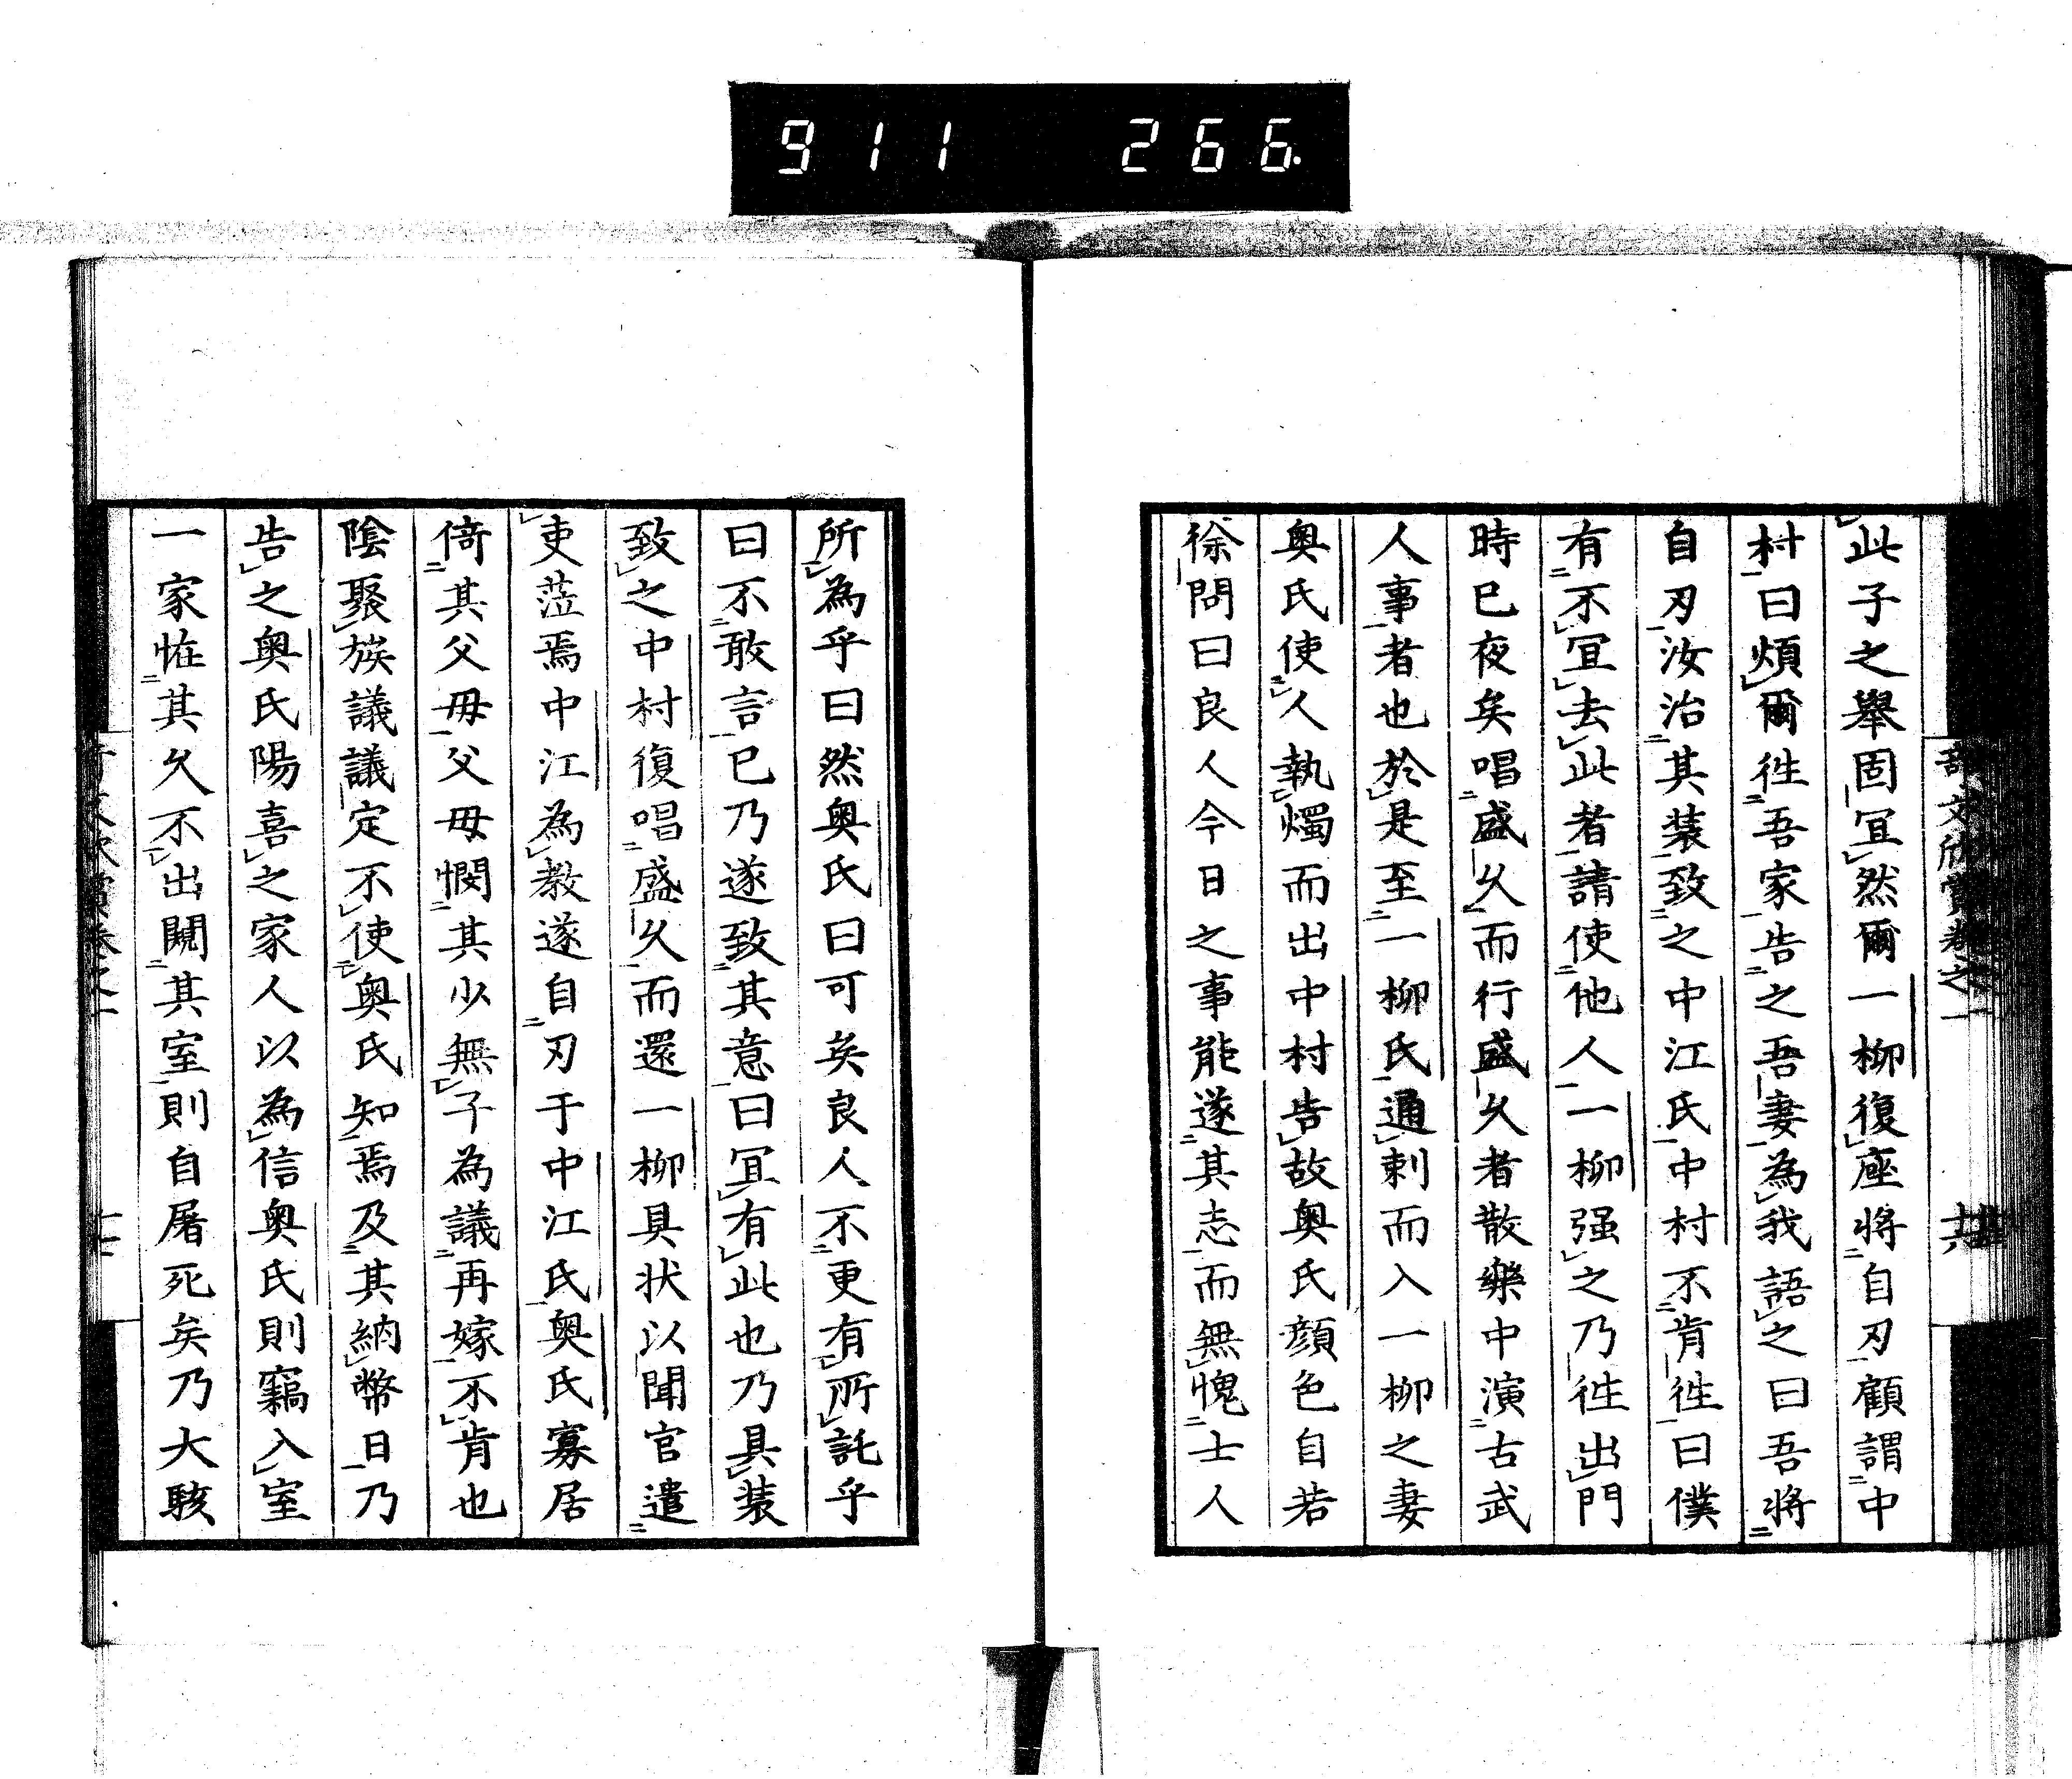 911 266.
此子之舉固冝然爾一柳復座將自刃顧謂中
村曰煩爾徃吾家告之吾妻為我語之曰吾将
自刃汝治其装致之中江氏中村不肯徃曰僕
有不冝去此者請使他人一柳强之乃徃出門
時已夜矣唱盛久而行盛久者散樂中演古武
人事者也於是至一柳氏通刺而入一柳之妻
奥氏使人執燭而出中村告故奥氏顔色自若
徐問曰良人今日之事能遂其志而無愧士人
所為乎曰然奥氏曰可矣良人不更有所託乎
曰不敢言已乃遂致其意曰冝有此也乃具装
致之中村復唱盛久而還一柳具状以聞官遣
吏蒞焉中江為教遂自刃于中江氏奥氏寡居
倚其父母父母憫其少無子為議再嫁不肯也
陰聚族議議定不使奥氏知焉及其納幣日乃
告之奥氏陽喜之家人以為信奥氏則竊入室
一家恠其久不出闚其室則自屠死矣乃大駭